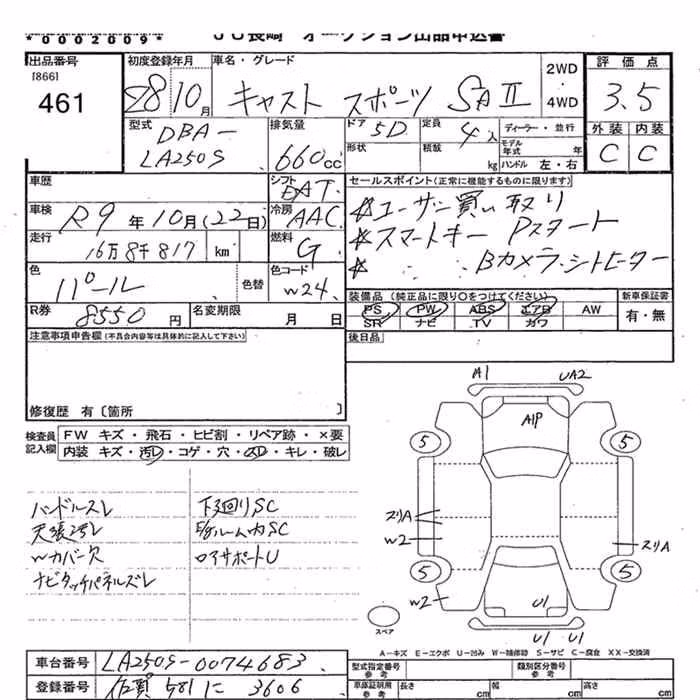 *0002009* JU長崎 オークション出品申込書
出品番号
[866]
461
初度登録年月
28 10月
車名・グレード
キャスト スポーツ SAⅡ
2WD
・
4WD
評価点
3.5
外装 内装
C C
型式
DBA-
LA250S
排気量
660cc
ドア 5D 定員 4人
形状 積載 kg
ディーラー・並行
モデル年式 年
ハンドル 左・右
車歴
シフト
FAT
セールスポイント(正常に機能するものに限ります)
☆ユーザー買い取り
☆スマートキー Pスタート
☆ Bカメラ シートヒーター
車検 R9年10月(22日)
冷房 AAC
走行 16万8千817 km
燃料 G
色 パール
色替
色コード
W24
装備品 (純正品に限り○をつけてください)
PS PW ABS エアB AW
SR ナビ TV カワ
新車保証書
有・無
R券 8550円
名変期限 月 日
後日品
注意事項申告欄(不具合内容等は具体的に記入して下さい)
修復歴 有〔箇所 〕
検査員記入欄
FW キズ・飛石・ヒビ割・リペア跡・×要
内装 キズ・汚レ・コゲ・穴・スレ・キレ・破レ
ハンドルスレ
天張汚レ
Wカバー欠
ナビタッチパネルズレ
下廻りSC
E/gルーム内SC
ロアサポートU
A1 UA2
A1P
5 5
スリA
W2
スリA
5 5
W2
U1
U1 U1
スペア
A-キズ E-エクボ U-凹み W-補修跡 S-サビ C-腐食 XX-交換済
車台番号 LA250S-0074683
登録番号 佐賀 581 に 3606
型式指定番号
参考
類別区分番号
参考
車庫証明用
参考
長さ cm
幅 cm
高さ cm